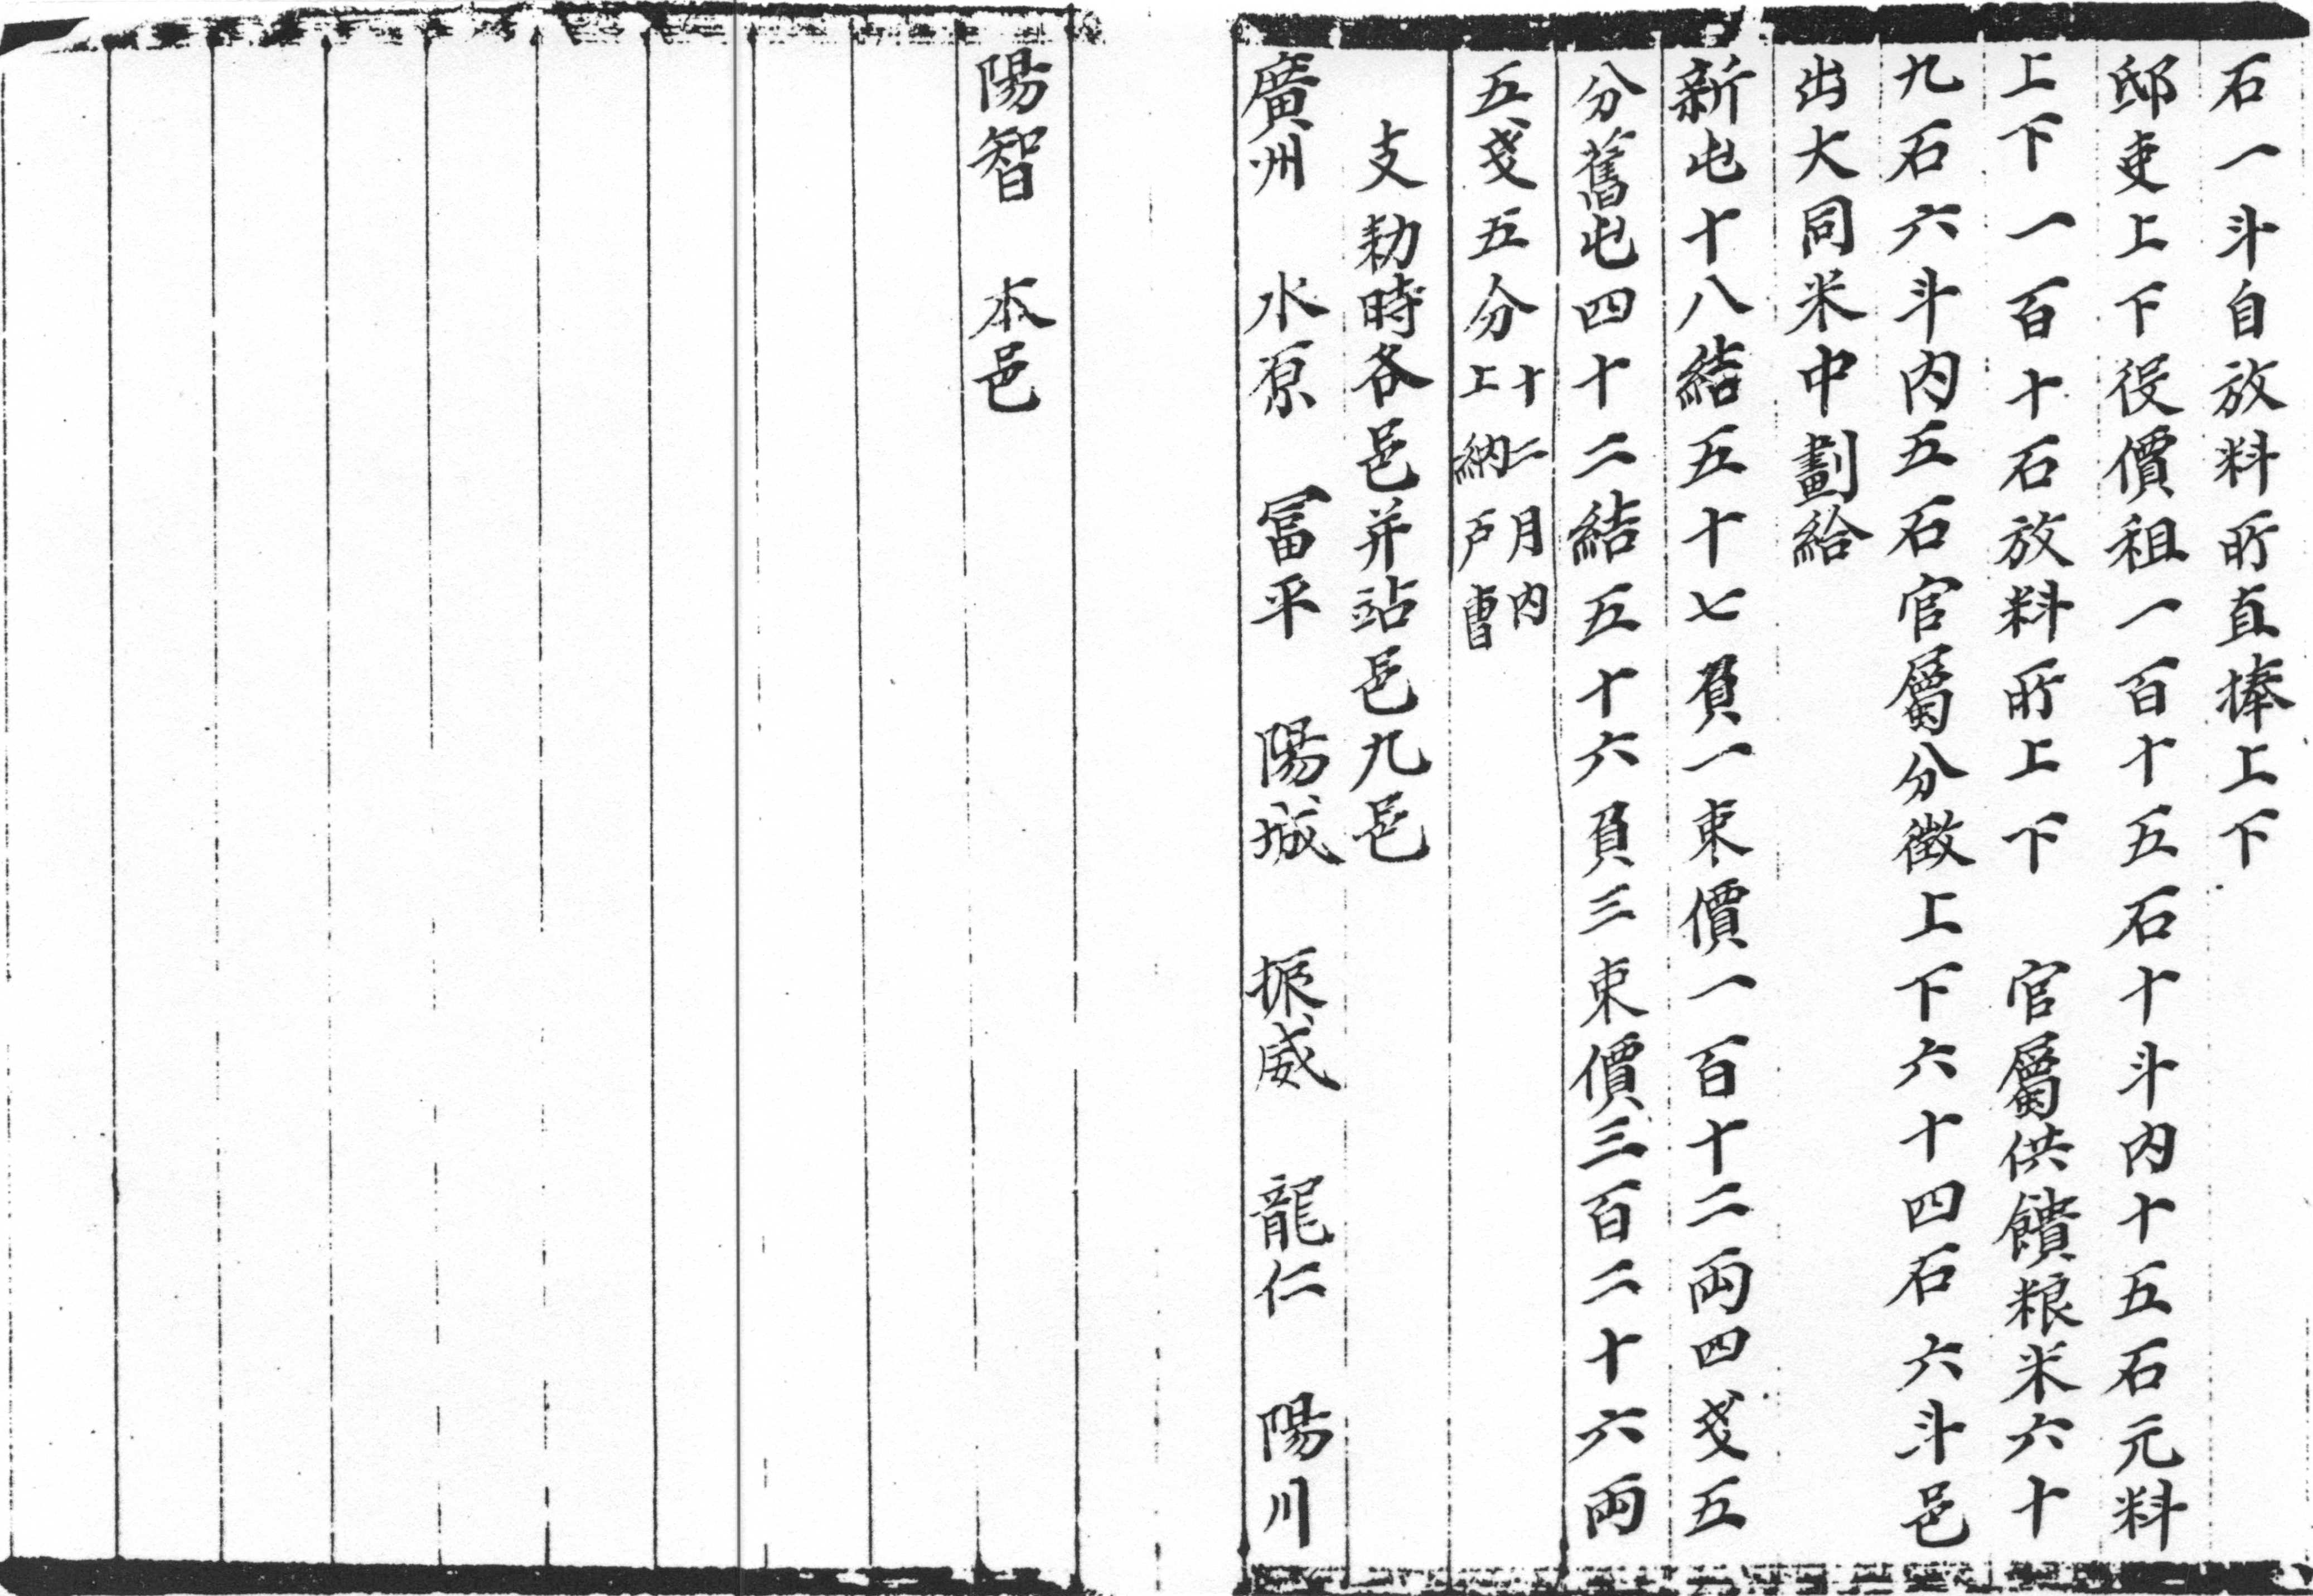 石一斗自放料所直捧上下
邸吏上下役價租一百十五石十斗內十五石元料
上下 一百十石放料所上下 官屬供饋粮米六十
九石六斗內五石官屬分徵上下六十四石六斗邑
出大同米中劃給
新屯十八結五十七負一束價一百十二両四戔五
分舊屯四十二結五十六負三束價三百二十六両
五戔五分十二月內上納戶曹
支勅時各邑并站邑九邑
廣州 水原 冨平 陽城 振威 龍仁 陽川
陽智 本邑